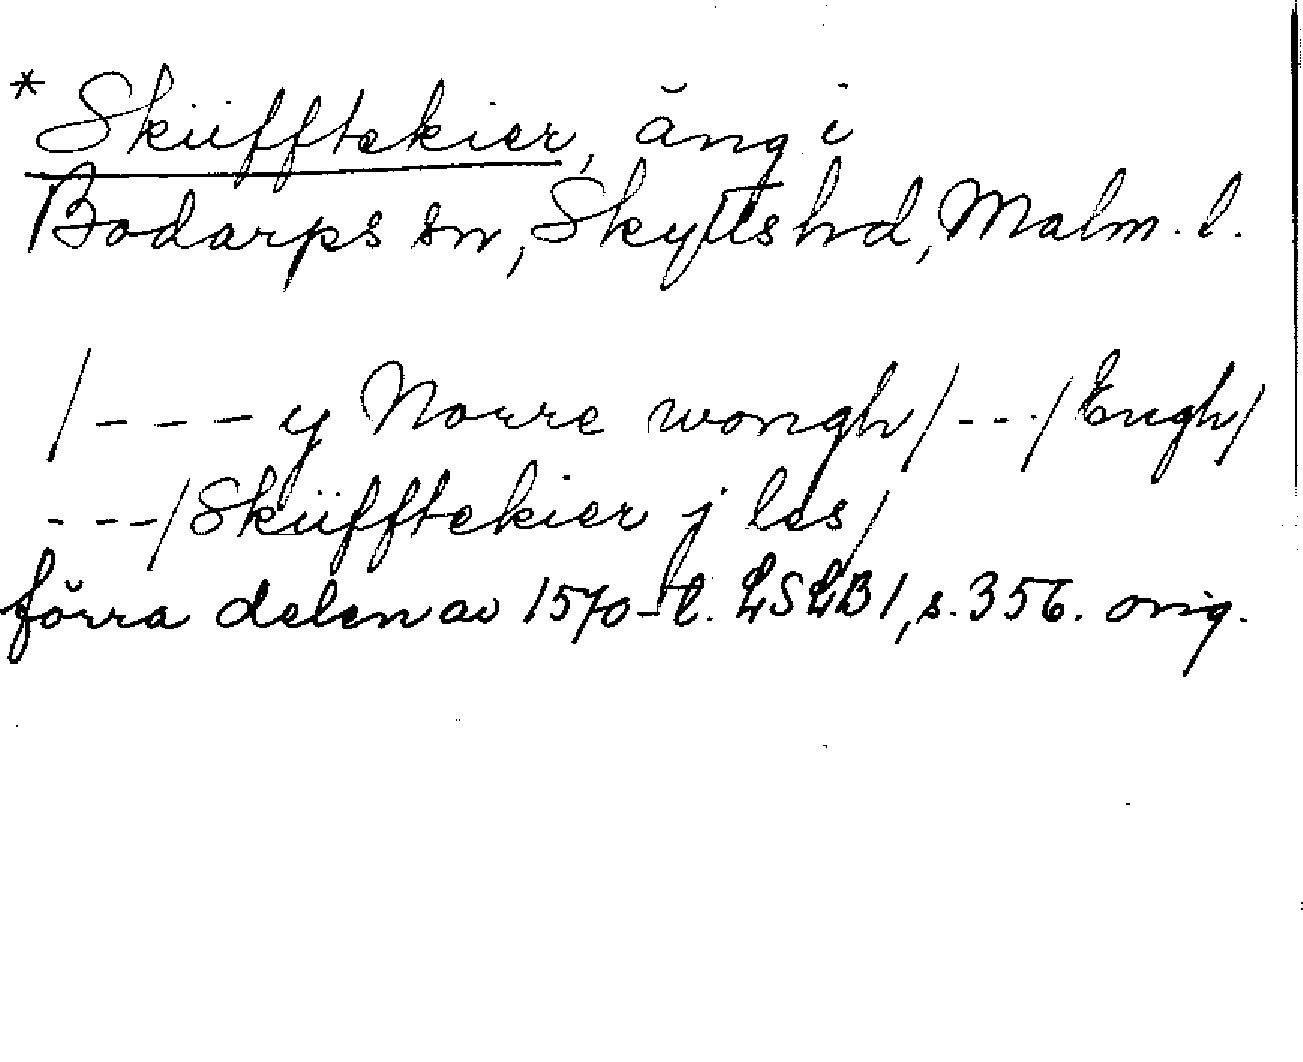 * Sküfftekier, äng i
Bodarps sn, Skytts hd, Malm. l.
/--- y Norre wongh/---/Engh/
---/Sküfftekier j les/
förra delen av 1570-t. LSLB1, s. 356. orig.